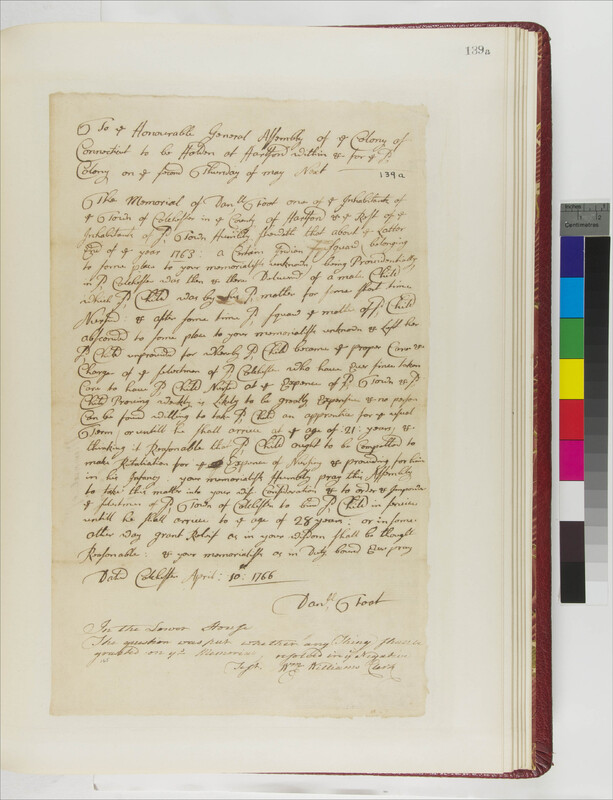 139a
To ye Honourable General Assembly of ye Colony of
Connecticut to be Holden at Hartford within & for ye sd
Colony on ye second Thursday of may Next
139a
The Memorial of Danll Foot one of ye Inhabitants of
ye Town of Colchester in ye County of Hartford & ye Rest of ye
Inhabitants of sd Town Humbly sheweth that about ye Latter
End of ye year 1763: a Certain Indian Squaw belonging
to some place to your memorialists unknown being Providentially
in sd Colchester was then & there Delivered of a male Child
which sd Child was by sd mother for some short time
Nursed & after some time sd squaw & mother of sd Child
absconded to some place to your memorialists unknown & Left her
sd Child unprovided for whereby sd Child became ye proper Care &
Charge of ye selectmen of sd Colchester who have Ever since taken
Care to have sd Child Nursed at ye Expence of sd Town & sd
Child Proving weakly is Likely to be greatly Expensive & no person
Can be found willing to take sd Child an apprentice for ye usual
Term or untill he shall arrive at ye age of :21: years, &
thinking it Reasonable that sd Child ought to be Compelled to
make Retaliation for ye Expence of Nursing & providing for him
in his Infancy: your memorialists Humbly pray this Assembly
to take this matter into your Consideration & to order & Impower
ye selectmen of sd Town of Colchester to bind sd Child in service
untill he shall arrive to ye age of 28 years: or in some
other way grant Relief as in your wisdom shall be thought
Reasonable: & your memorialists as in Duty bound Ever pray
Dated Colchester April: 10th 1766
Danll Foot
In the Lower House
The question was put whether any Thing should be
granted on ys Memorial; resolved in ye Negative
Test. Wm Williams Clerk